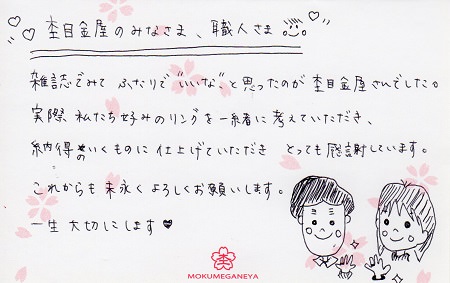 杢目金屋のみなさま、職人さま
雑誌でみて ふたりで"いいな"と思ったのが 杢目金屋さんでした。
実際 私たち好みのリングを一緒に考えていただき、
納得のいくものに 仕上げていただき とっても感謝しています。
これからも末永くよろしくお願いします。
一生大切にします♥
MOKUMEGANEYA